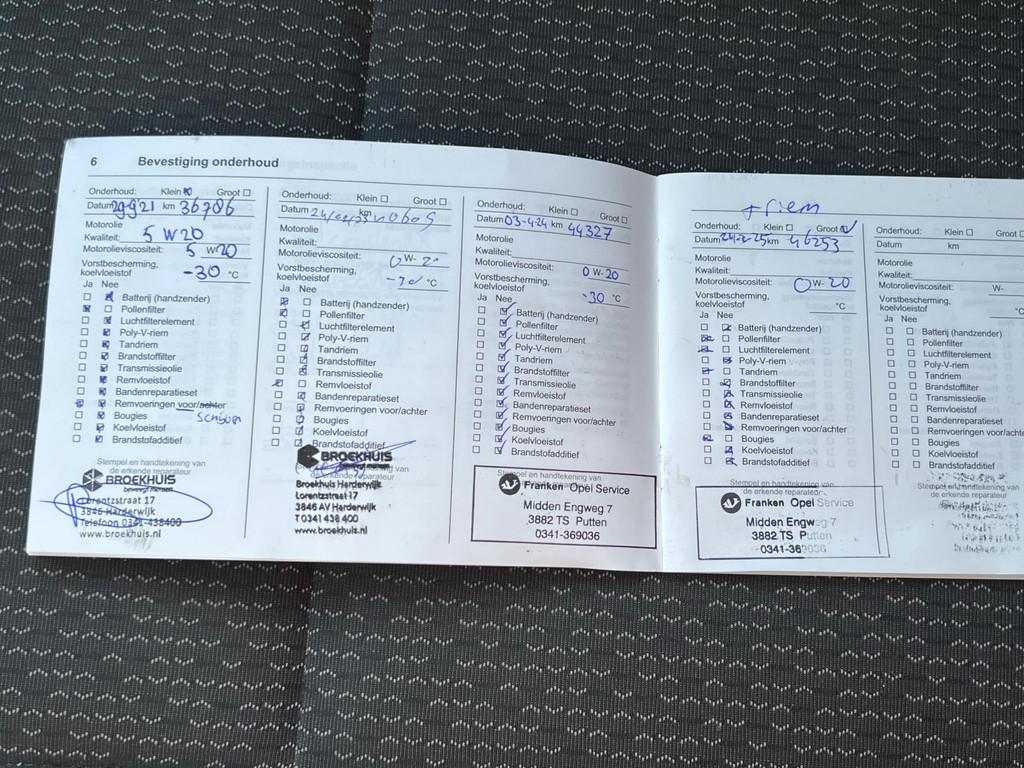 6 Bevestiging onderhoud
Onderhoud: Klein Groot
Datum 29921 km 36786
Motorolie
Kwaliteit: 5 W20
Motorolieviscositeit: 5 W-20
Vorstbescherming,
koelvloeistof -30 °C
Ja Nee
Batterij (handzender)
Pollenfilter
Luchtfilterelement
Poly-V-riem
Tandriem
Brandstoffilter
Transmissieolie
Remvloeistof
Bandenreparatieset
Remvoeringen voor/achter
Bougies
Koelvloeistof
Brandstofadditief
Stempel en handtekening van
de erkende reparateur
BROEKHUIS
Lorentzstraat 17
3846 Harderwijk
Telefoon 0341-438400
www.broekhuis.nl
Onderhoud: Klein Groot
Datum km
Motorolie
Kwaliteit:
Motorolieviscositeit: 0 W-20
Vorstbescherming,
koelvloeistof -30 °C
Ja Nee
Batterij (handzender)
Pollenfilter
Luchtfilterelement
Poly-V-riem
Tandriem
Brandstoffilter
Transmissieolie
Remvloeistof
Bandenreparatieset
Remvoeringen voor/achter
Bougies
Koelvloeistof
Brandstofadditief
BROEKHUIS
Broekhuis Harderwijk
Lorentzstraat 17
3846 AV Harderwijk
T 0341 438 400
www.broekhuis.nl
Onderhoud: Klein Groot
Datum 03-4-24 km 44327
Motorolie
Kwaliteit:
Motorolieviscositeit: 0 W-20
Vorstbescherming,
koelvloeistof -30 °C
Ja Nee
Batterij (handzender)
Pollenfilter
Luchtfilterelement
Poly-V-riem
Tandriem
Brandstoffilter
Transmissieolie
Remvloeistof
Bandenreparatieset
Remvoeringen voor/achter
Bougies
Koelvloeistof
Brandstofadditief
Stempel en handtekening van
Franken Opel Service
Midden Engweg 7
3882 TS Putten
0341-369036
+ riem
Onderhoud: Klein Groot
Datum 24-2-25 km 46253
Motorolie
Kwaliteit:
Motorolieviscositeit: 0 W-20
Vorstbescherming,
koelvloeistof °C
Ja Nee
Batterij (handzender)
Pollenfilter
Luchtfilterelement
Poly-V-riem
Tandriem
Brandstoffilter
Transmissieolie
Remvloeistof
Bandenreparatieset
Remvoeringen voor/achter
Bougies
Koelvloeistof
Brandstofadditief
Stempel en handtekening van
de erkende reparateur
Franken Opel Service
Midden Engweg 7
3882 TS Putten
0341-369036
Onderhoud: Klein Groot
Datum km
Motorolie
Kwaliteit:
Motorolieviscositeit: W-
Vorstbescherming,
koelvloeistof °C
Ja Nee
Batterij (handzender)
Pollenfilter
Luchtfilterelement
Poly-V-riem
Tandriem
Brandstoffilter
Transmissieolie
Remvloeistof
Bandenreparatieset
Remvoeringen voor/achter
Bougies
Koelvloeistof
Brandstofadditief
de erkende reparateur